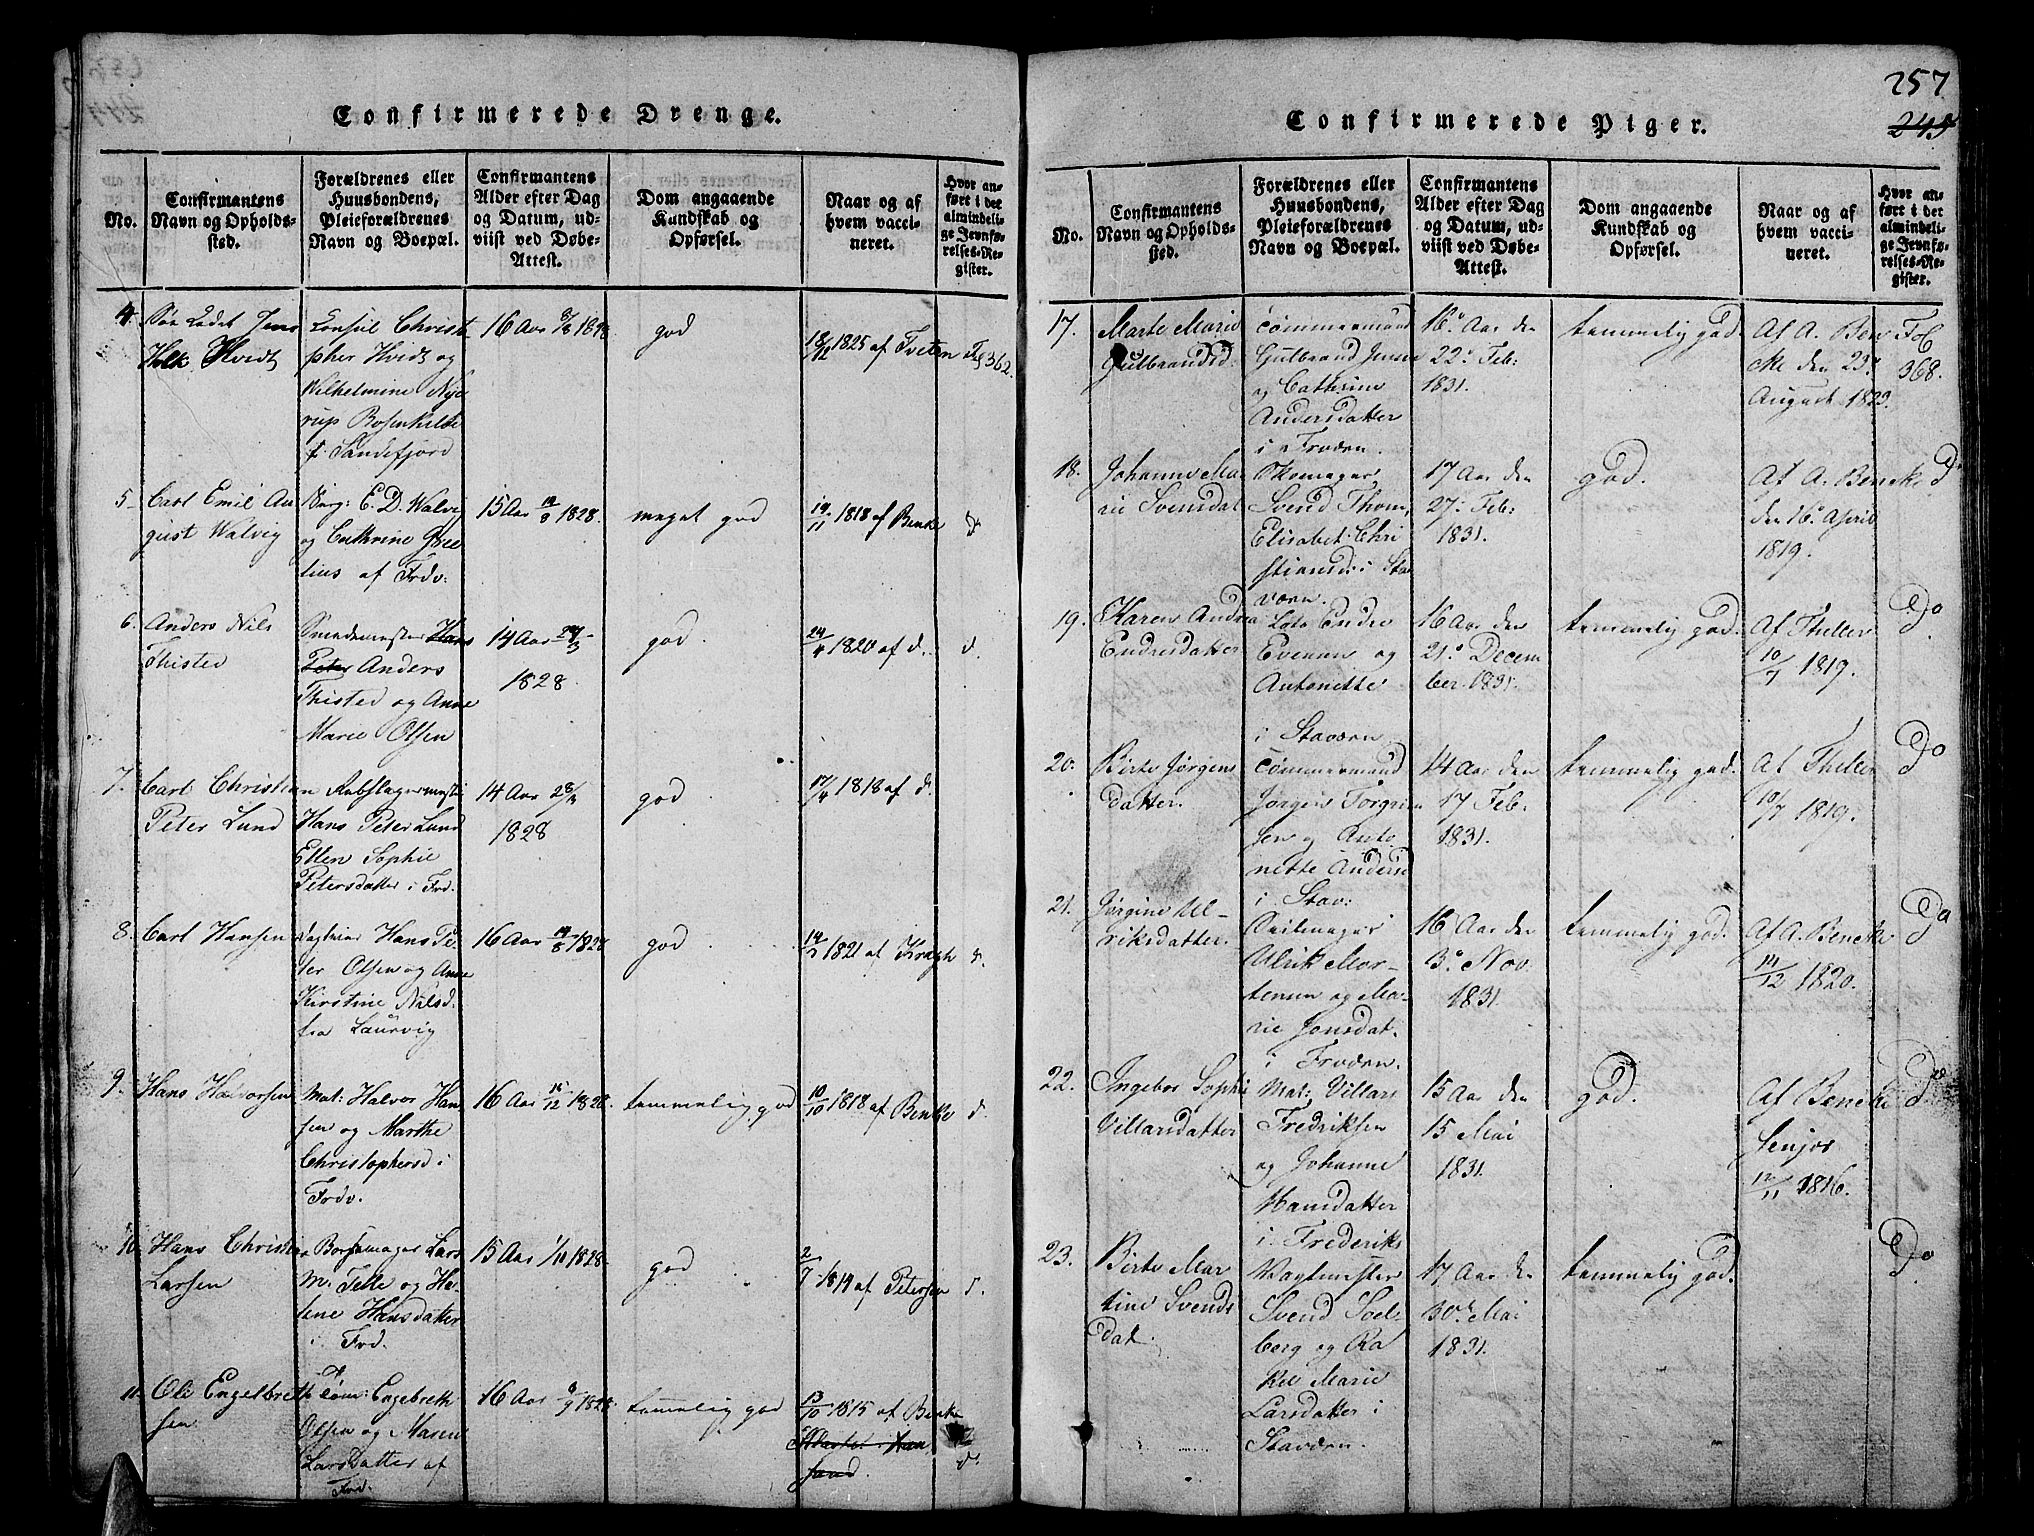 257
245
Confirmerede Drenge.
No.
Confirmantens
Navn og Opholds-
sted.
Forældrenes eller
Huusbondens,
Pleieforældrenes
Navn og Boepæl.
Confirmantens
Alder efter Dag
og Datum, ud-
viist ved Døbe-
Attest.
Dom angaaende
Kundskab og
Opførsel.
Naar og af
hvem vacci-
neret.
Hvor an-
ført i det
almindeli-
ge Jevnfø-
relses-Re-
gister.
4.
Jens
Holk Hvidt
Consul Christ
pher Hvidt og
Wilhelmine Nye
rup Bosenkilde
f. Sandefjord
16 Aar
god
18/12 1825 af Tveten
362.
5.
Carl Emil Au
gust Walvig
Borg: E. D. Walvig
og Cathrine
af Frdv:
15 Aar 1828.
meget god
19/11 1818 af Benke
6.
Anders Nils
Thisted
Smedemester Hans
Peter Anders
Thisted og Anne
Marie Olsen
14 Aar
1828
god
24/4 1820 af d.
d.
7.
Carl Christian
Peter Lund
Rebslagermester
Hans Peter Lund
Ellen Sophie
Petersdatter i Frd.
14 Aar 28/4
1828
god
17/4 1818 af d.
8.
Carl Hansen
Hans Pe
ter Olsen og Anne
Kirstine Nilsd.
fra Laurvig
16 Aar 14/8 1828
god
14/2 1821 af Kragh
d.
9.
Hans Halvorsen
Mat: Halvor Han
sen og Marthe
Christophersd i
Frdv.
16 Aar 15/12 1828.
temmelig god
10/10 1818 af Benke
d.
10.
Hans Christian
Larsen
Lars
M. Telle og He-
lene Hansdatter
i Frd.
15 Aar 1/10 1828.
god
2/7 1814 af Petersen
d.
11.
Ole Engelbreth
sen
Tøm: Engebreth
Olsen og Maren
Larsdatter af
Frd.
16 Aar 1828
temmelig god
13/10 1815 af Benke
d.
Confirmerede Piger.
No.
Confirmantens
Navn og Opholds-
sted.
Forældrenes eller
Huusbondens,
Pleieforældrenes
Navn og Boepæl.
Confirmantens
Alder efter Dag
og Datum, ud-
viist ved Døbe-
Attest.
Dom angaaende
Kundskab og
Opførsel.
Naar og af
hvem vacci-
neret.
Hvor an-
ført i det
almindeli-
ge Jevnfø-
relses-Re-
gister.
17.
Marte Marie
Gulbrandsd.
Tømmermand
Gulbrand Jensen
og Cathrine
Andersdatter
i Frværn.
16 Aar den
22. Feb:
1831.
temmelig god.
Af A. Ben
cke den 23.
August 1823.
Fol
368.
18.
Johanne Ma
rie Svensdat
Skomager
Svend Thom,
Elisabet Chri
stiansd: i Sta
værn.
17 Aar den
27. Feb:
1831.
god.
Af A. Bencke
den 16. April
1819.
Do
19.
Karen Andrea
Endresdatter
Lots Endre
Evensen og
Antonette
i Staværn
16 Aar den
21. Decem
ber. 1831.
temmelig god.
Af Theller
10/7 1819.
Do
20.
Birte Jørgens
datter.
Tømmermand
Jørgen Torgri
sen og Anto
nette Andersd
i Stav:
14 Aar den
17 Feb:
1831.
temmelig god.
Af Theller
10/7 1819.
Do
21.
Jørgine Ul-
riksdatter.
Seilmager
Ulrik Mor-
tensen og Ma-
rie Jensdat.
i Frværn.
16 Aar den
3. Nov.
1831.
temmelig god.
Af A. Bencke
14/12 1820.
Do
22.
Ingebor Sophie
Villarsdatter
Mat: Villars
Fredriksen
og Johanne
Hansdatter
i Frederiks
15 Aar den
15 Mai
1831.
god.
Af Bencke
Senjor
12/11 1816.
Do
23.
Birte Mar
tine Svends
dat.
Vagtmester
Svend Soel-
berg og Ra
kel Marie
Larsdatter i
Staværn.
17 Aar de
30. Mai
1831.
temmelig god.
Do